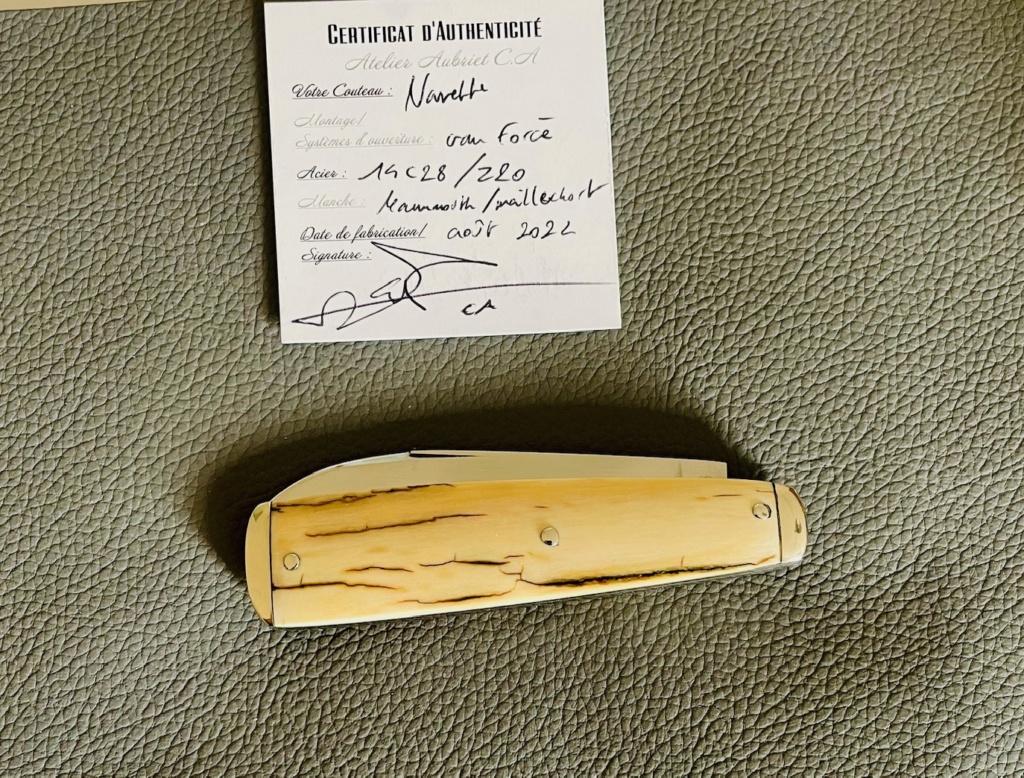 CERTIFICAT D'AUTHENTICITÉ
Atelier Aubriet C.A
Votre Couteau : Navette
Montage/
Systèmes d'ouverture : cran Forcé
Acier : 14C28 / Z20
Manche : Mammouth / maillechort
Date de fabrication/ août 2022
Signature :
CA